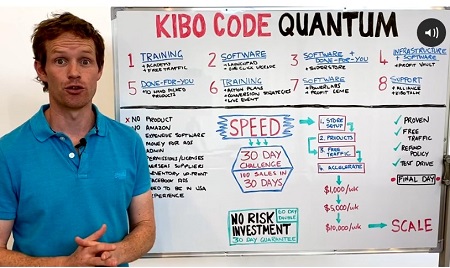 KIBO CODE QUANTUM
1 TRAINING
• ACADEMY
• FREE TRAFFIC
2 SOFTWARE
• LAUNCHPAD
3 SOFTWARE + DONE-FOR-YOU
• SUPERSTORE
4 INFRASTRUCTURE + SOFTWARE
• PROFIT VAULT
5 DONE-FOR-YOU
HAND PICKED
PRODUCTS
6 TRAINING
• ACTION PLANS
• CONVERSION STRATEGIES
• LIVE EVENT
7 SOFTWARE
• POWERTABS
• PROFIT COMB
8 SUPPORT
• ALLIANCE
• KIBOTALK
X NO PRODUCT
NO AMAZON
EXPENSIVE SOFTWARE
MONEY FOR ADS
ADMIN
PERMISSIONS/LICENSES
SUPPLIERS
UP-FRONT
FACEBOOK ADS
TO BE IN USA
SPEED
30 DAY
CHALLENGE
100 SALES IN
30 DAYS
NO RISK
INVESTMENT
60 DAY
DOUBLE
30 DAY GUARANTEE
1. STORE
SETUP
2. PRODUCTS
3. FREE
TRAFFIC
4. ACCELERATE
$1,000/wk
$5,000/wk
$10,000/wk
SCALE
✓ PROVEN
✓ FREE
TRAFFIC
✓ REFUND
POLICY
✓ TEST DRIVE
FINAL DAY